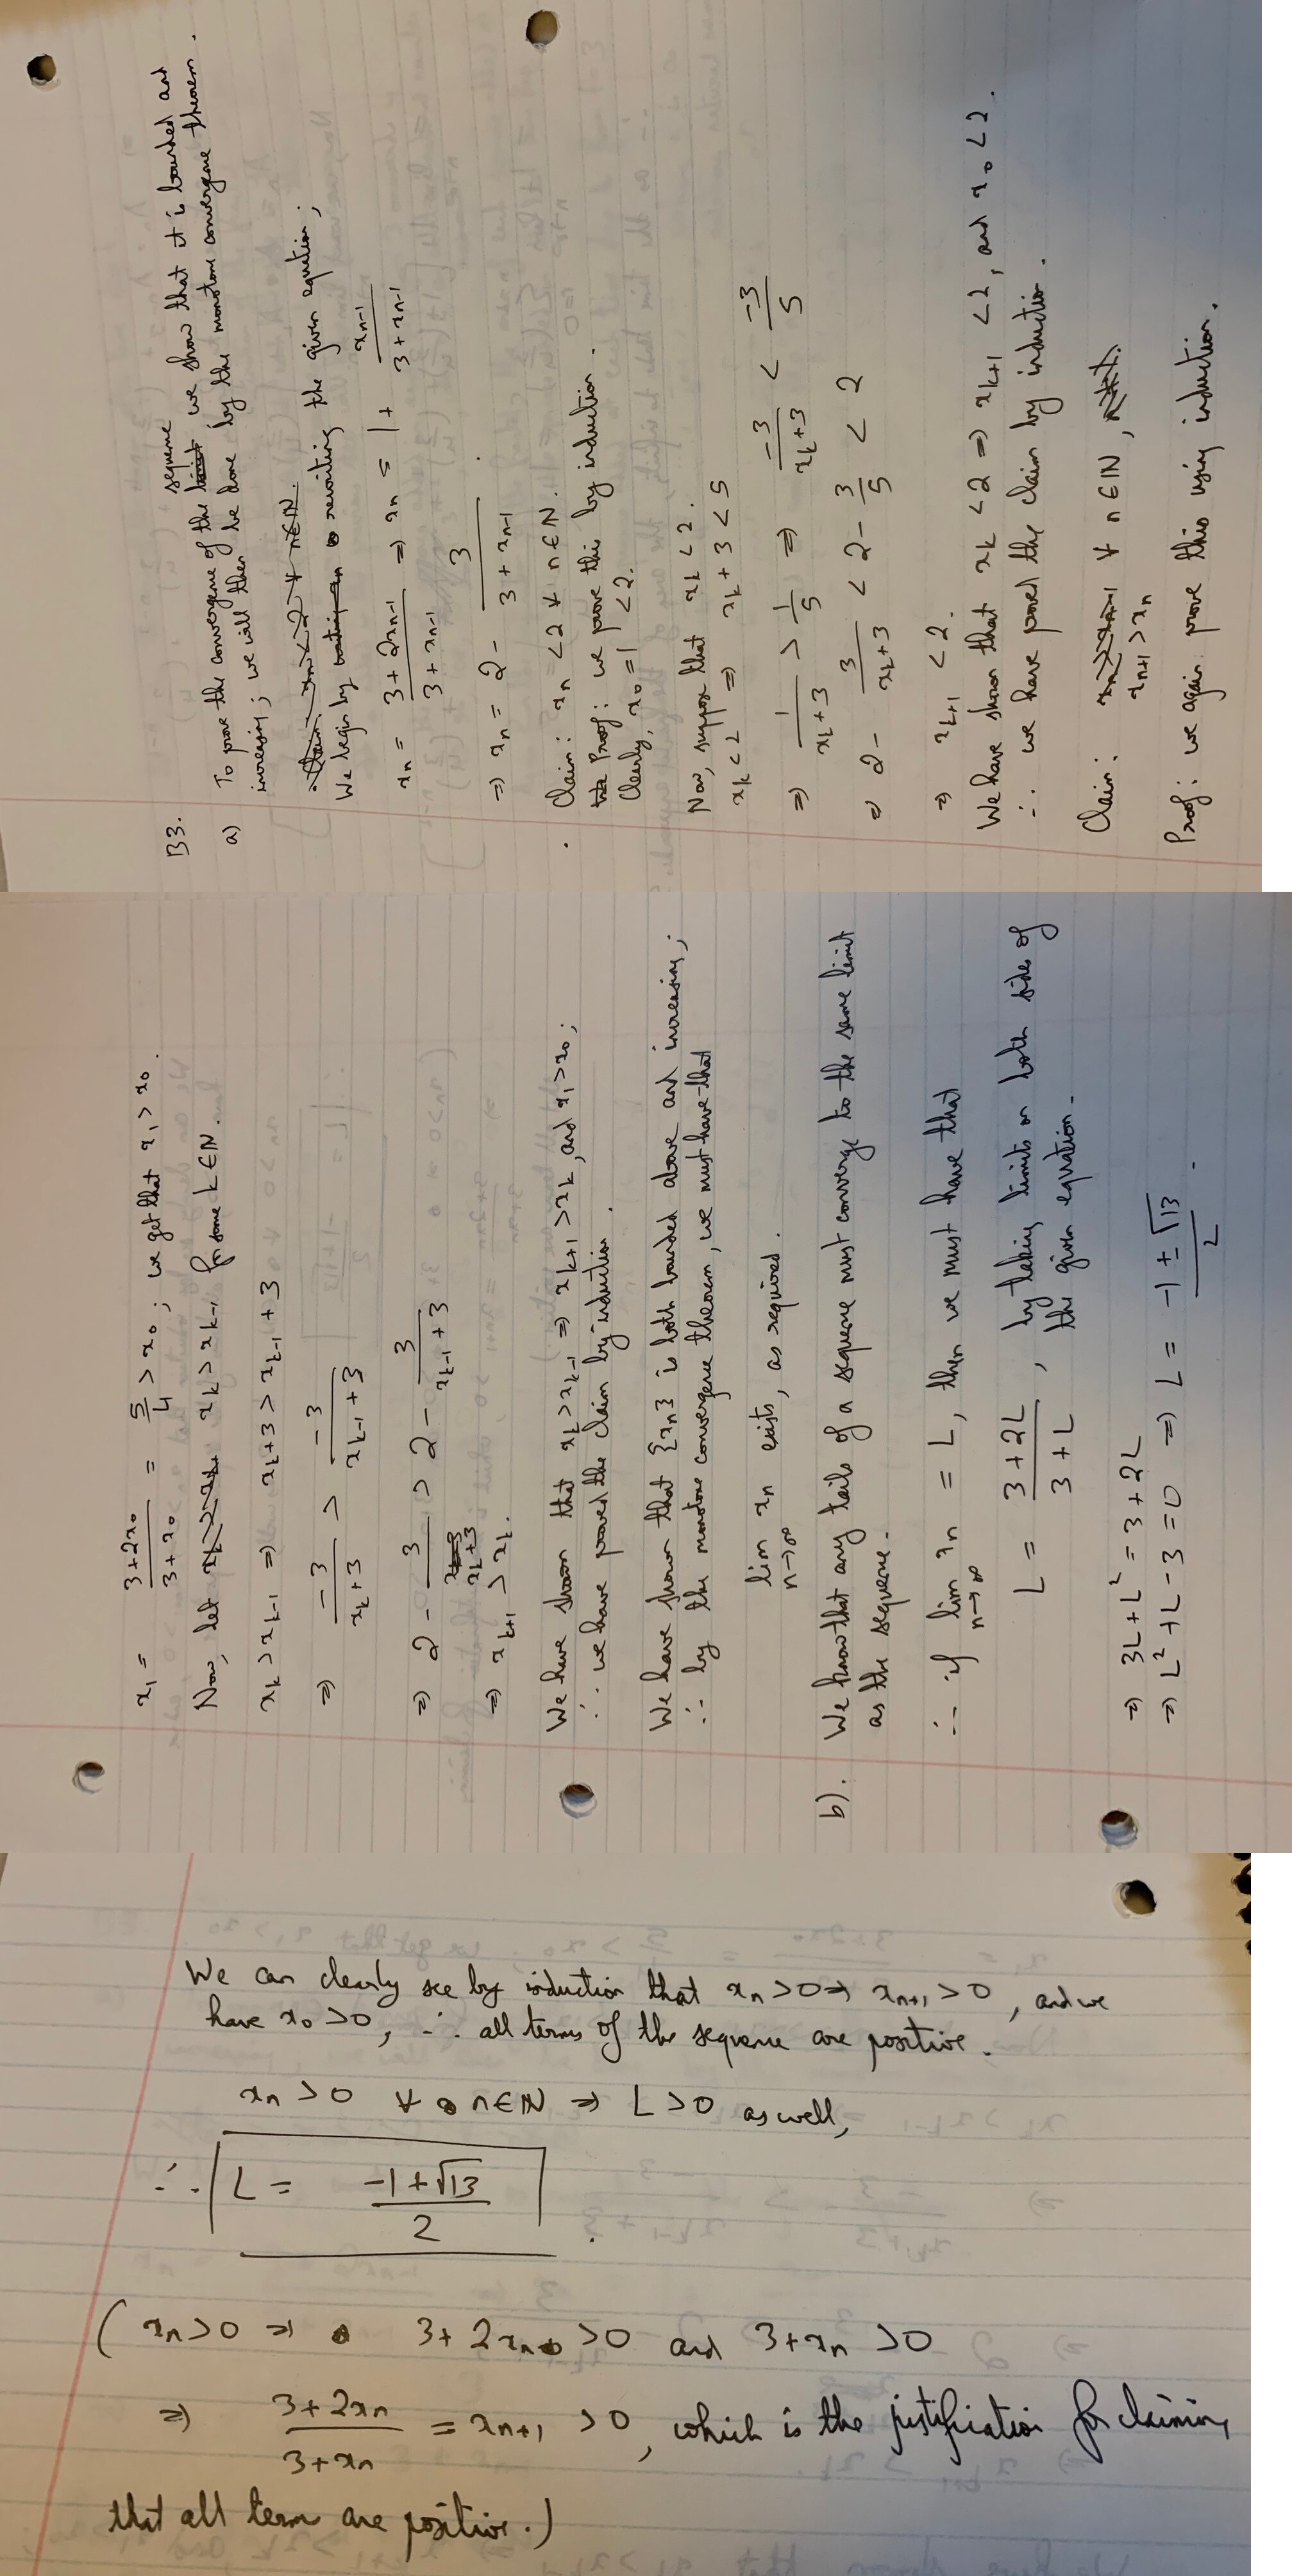 B3.
a) To prove the convergence of the sequence we show that it is bounded and
increasing; we will then be done by the monotone convergence theorem.
Claim: xn < 2 ∀ n∈N.
We begin by rewriting the given equation;
xn = (3 + 2xn-1)/(3 + xn-1) ⇒ xn = 1 + xn-1/(3 + xn-1)
⇒ xn = 2 - 3/(3 + xn-1).
. Claim: xn < 2 ∀ n∈N.
Proof: we prove this by induction.
Clearly, x0 = 1 < 2.
Now, suppose that xk < 2.
xk < 2 ⇒ xk + 3 < 5
⇒ 1/(xk+3) > 1/5 ⇒ -3/(xk+3) < -3/5
⇒ 2 - 3/(xk+3) < 2 - 3/5 < 2
⇒ xk+1 < 2.
We have shown that xk < 2 ⇒ xk+1 < 2, and x0 < 2.
∴ we have proved the claim by induction.
Claim: xn+1 > xn ∀ n∈N,
Proof: we again prove this using induction.
x1 = (3+2x0)/(3+x0) = 5/4 > x0; we get that x1 > x0.
Now, let xk > xk-1 for some k∈N.
xk > xk-1 ⇒ xk+3 > xk-1 + 3
⇒ -3/(xk+3) > -3/(xk-1+3)
⇒ 2 - 3/(xk+3) > 2 - 3/(xk-1+3)
⇒ xk+1 > xk.
We have shown that xk > xk-1 ⇒ xk+1 > xk, and x1 > x0;
∴ we have proved the claim by induction.
We have shown that {xn} is both bounded above and increasing;
∴ by the monotone convergence theorem, we must have that
lim n→∞ xn exists, as required.
b). We know that any tails of a sequence must converge to the same limit
as the sequence.
∴ if lim n→∞ xn = L, then we must have that
L = (3+2L)/(3+L), by taking limits on both sides of
the given equation.
⇒ 3L + L² = 3 + 2L
⇒ L² + L - 3 = 0 ⇒ L = (-1 ± √13)/2.
We can clearly see by induction that xn > 0 ⇒ xn+1 > 0, and we
have x0 > 0, ∴ all terms of the sequence are positive.
xn > 0 ∀ n∈N ⇒ L > 0 as well,
∴ L = (-1+√13)/2.
(xn > 0 ⇒ 3 + 2xn > 0 and 3 + xn > 0
⇒ (3+2xn)/(3+xn) = xn+1 > 0, which is the justification for claiming
that all term are positive.)